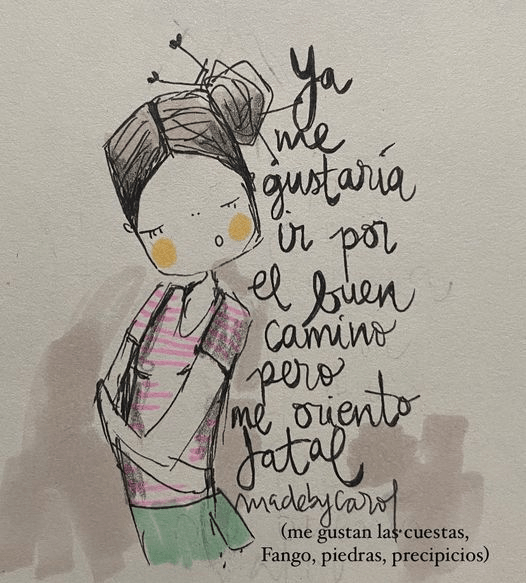 Ya
me
gustaría
ir por
el buen
camino
pero
me oriento
fatal
madebycarol
(me gustan las cuestas,
Fango, piedras, precipicios)